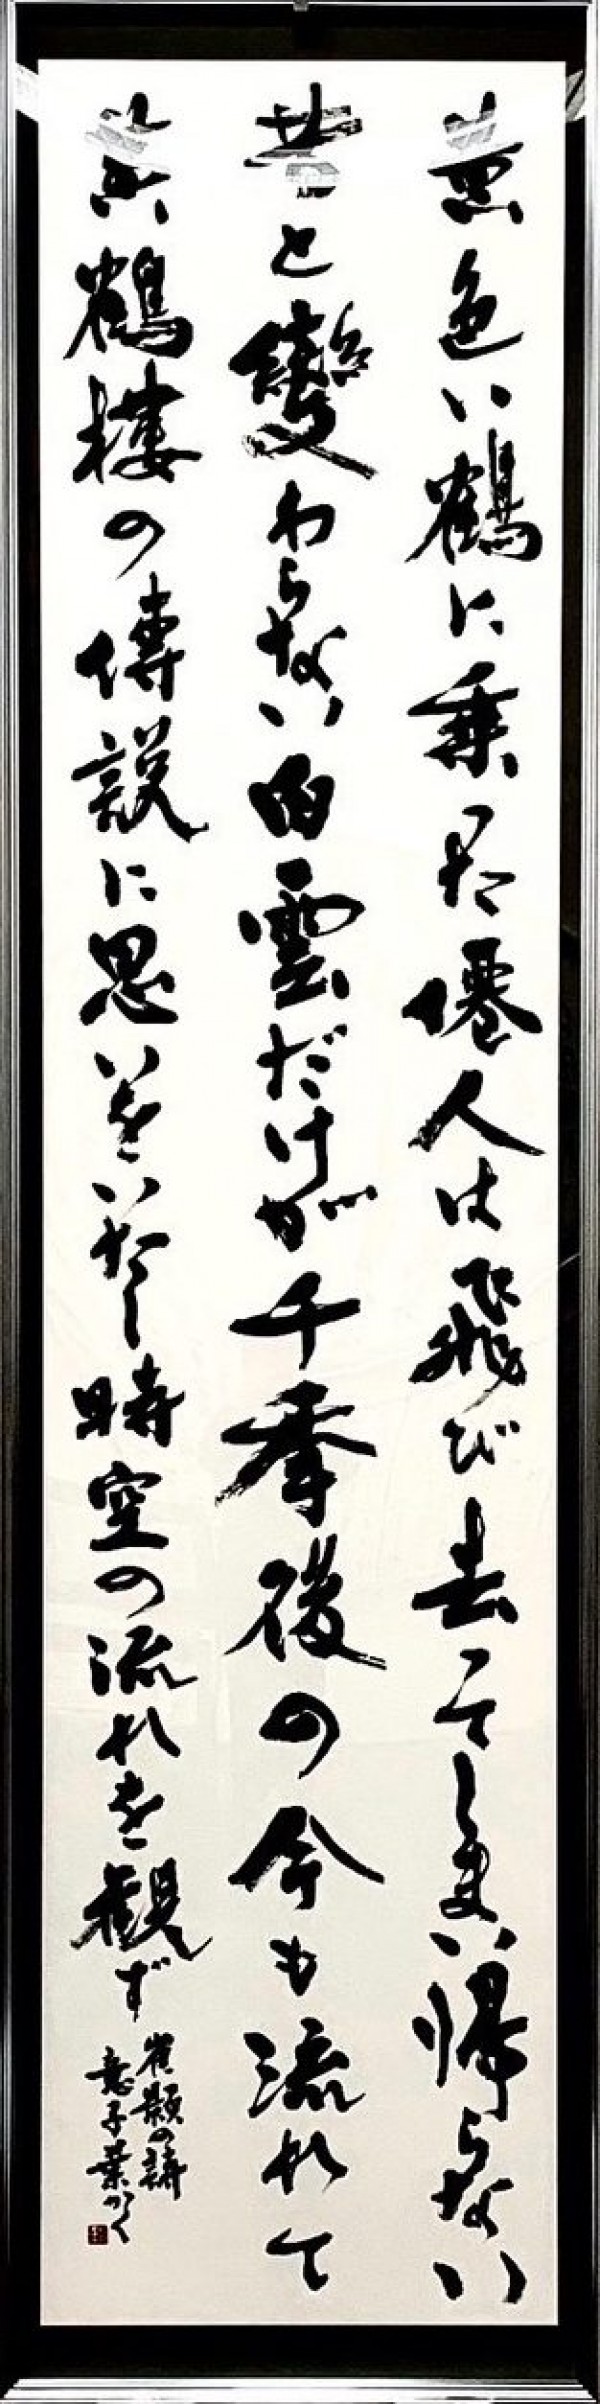 黄色い鶴に乗った僊人は飛び去ってしまい帰らない
昔と變わらない白雲だけが千季後の今も流れて
黄鶴樓の傳説に思いをいたし時空の流れを観ず
崔顥の詩
意子葉かく